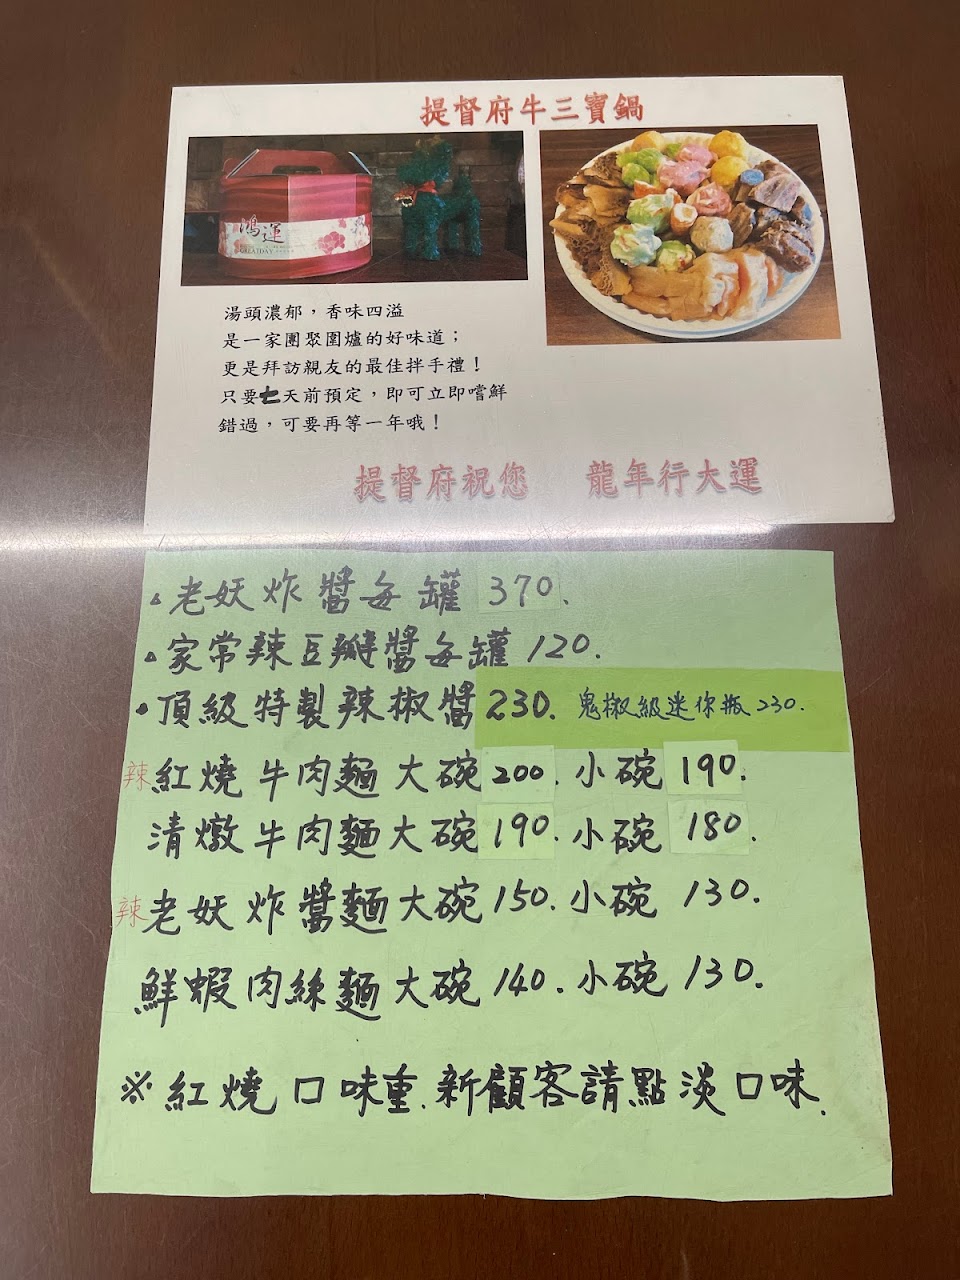 提督府牛三寶鍋
鴻運
GREATDAY
湯頭濃郁，香味四溢
是一家團聚圍爐的好味道；
更是拜訪親友的最佳拌手禮！
只要七天前預定，即可立即嚐鮮
錯過，可要再等一年哦！
提督府祝您 龍年行大運
▵老妖炸醬每罐 370.
▵家常辣豆瓣醬每罐 120.
•頂級特製辣椒醬 230. 鬼椒級迷你瓶 230.
辣紅燒牛肉麵大碗 200. 小碗 190.
清燉牛肉麵大碗 190. 小碗 180.
辣老妖炸醬麵大碗 150. 小碗 130.
鮮蝦肉絲麵大碗 140. 小碗 130.
※紅燒口味重.新顧客請點淡口味.